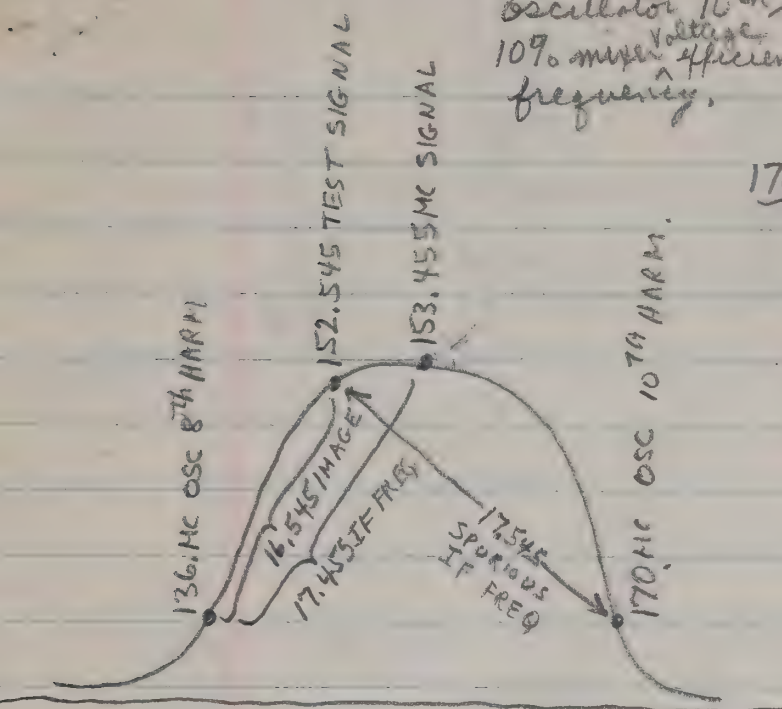 oscillator 10th
10% mixer voltage efficien
frequency.
17
136. MC OSC 8th HARM
152.545 TEST SIGNAL
153.455 MC SIGNAL
170. MC OSC 10TH HARM.
16.545 IMAGE
17.455 IF FREQ
17.545
SPURIOUS
IF FREQ